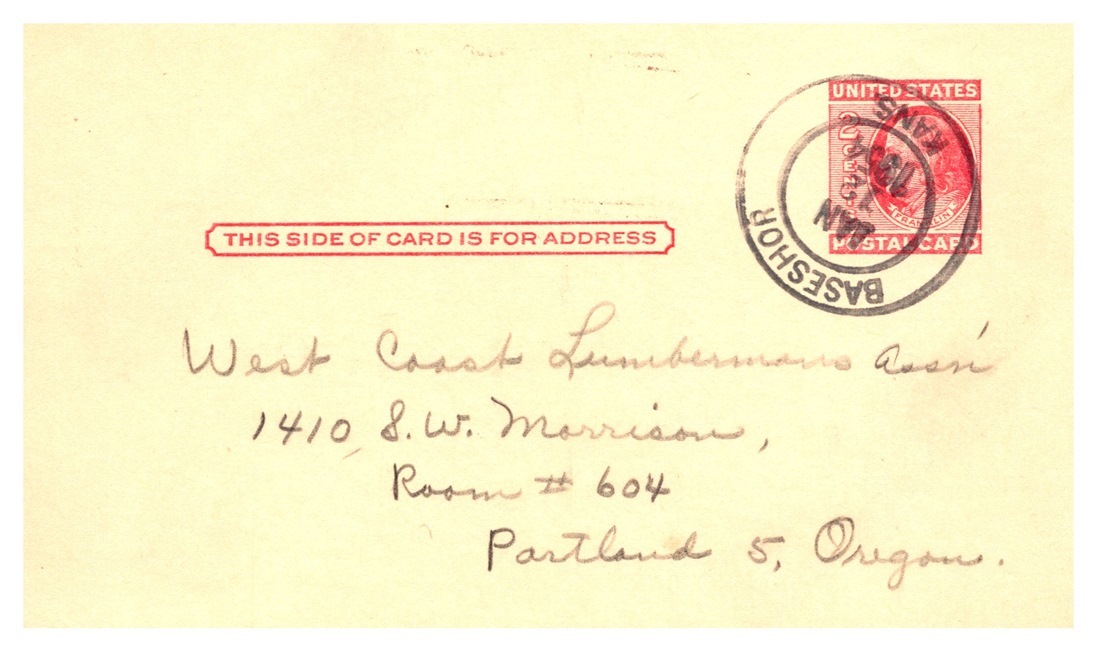 UNITED STATES
2 CENTS
FRANKLIN
POSTAL CARD
BASESHOR
KANS
JAN
1954
THIS SIDE OF CARD IS FOR ADDRESS
West Coast Lumbermans Assn'
1410 S.W. Morrison,
Room # 604
Portland 5, Oregon.